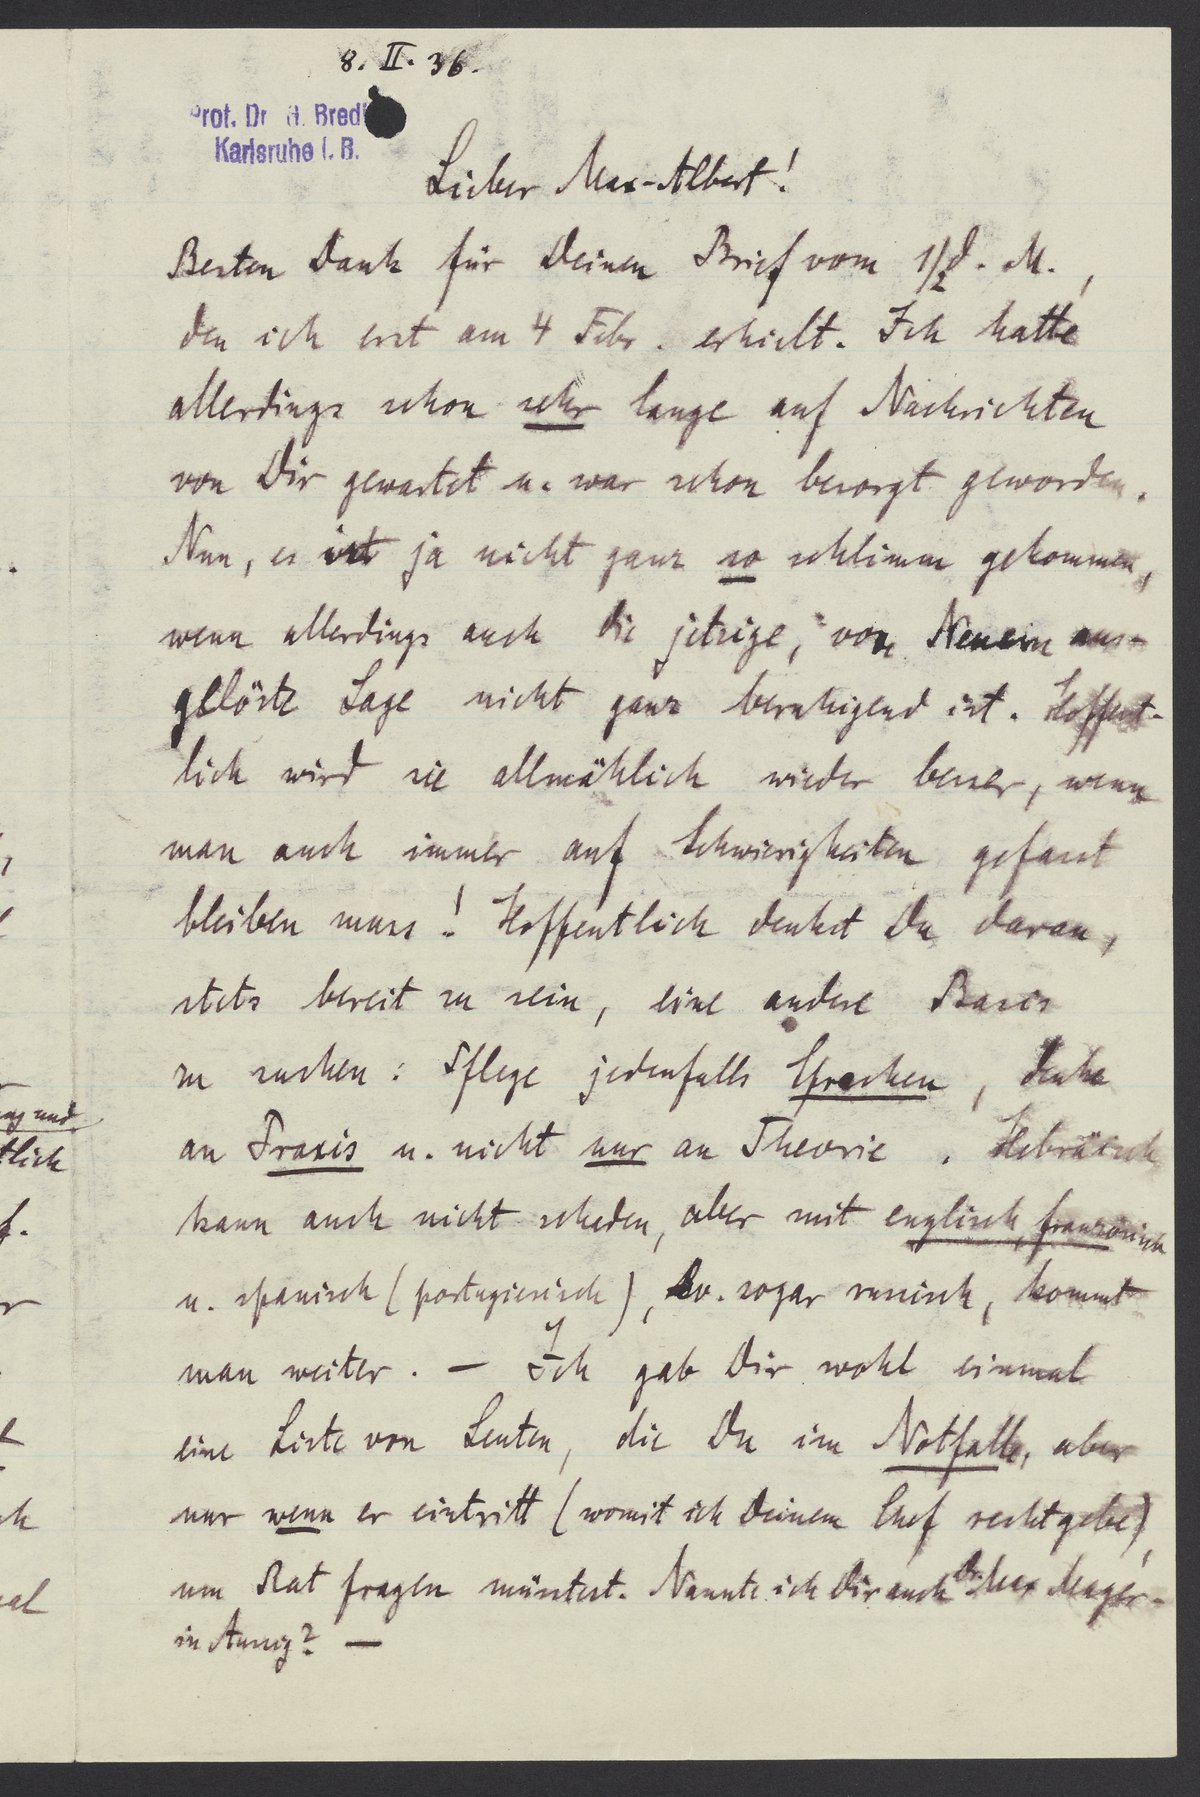 8. II. 36.
Prof. Dr. G. Bredi
Karlsruhe i. B.
Lieber Max-Albert!
Besten Dank für Deinen Brief vom 1/2 d. M.,
den ich erst am 4 Febr. erhielt. Ich hatte
allerdings schon sehr lange auf Nachrichten
von Dir gewartet u. war schon besorgt geworden.
Nun, es ist ja nicht ganz so schlimm gekommen,
wenn allerdings auch die jetzige, von Neuem aus-
gelöste Lage nicht ganz beruhigend ist. Hoffent-
lich wird sie allmählich wieder besser, wenn
man auch immer auf Schwierigkeiten gefasst
bleiben muss! Hoffentlich denkst Du daran,
stets bereit zu sein, eine andere Basis
zu suchen: Pflege jedenfalls Sprachen, denke
an Praxis u. nicht nur an Theorie. Hebräisch
kann auch nicht schaden, aber mit englisch, französisch
u. spanisch (portugiesisch), ev. sogar russisch, kommt
man weiter. — Ich gab Dir wohl einmal
eine Liste von Leuten, die Du im Notfalle, aber
nur wenn er eintritt (womit ich Deinem Chef rechtgebe),
um Rat fragen müsstest. Nannte ich Dir auch Dr. Max Mayer-
in Aussig? —
ung und
tlich
f.